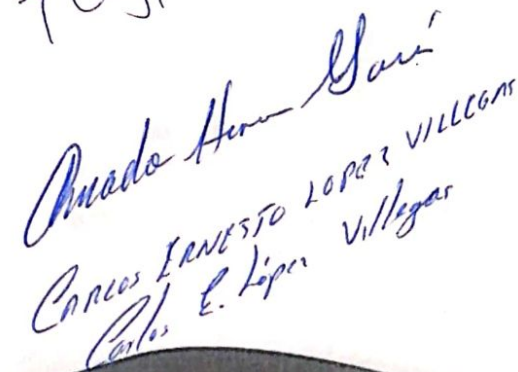 Amado Hern
CARLOS ERNESTO LOPEZ VILLEGAS
Carlos E. López Villegas